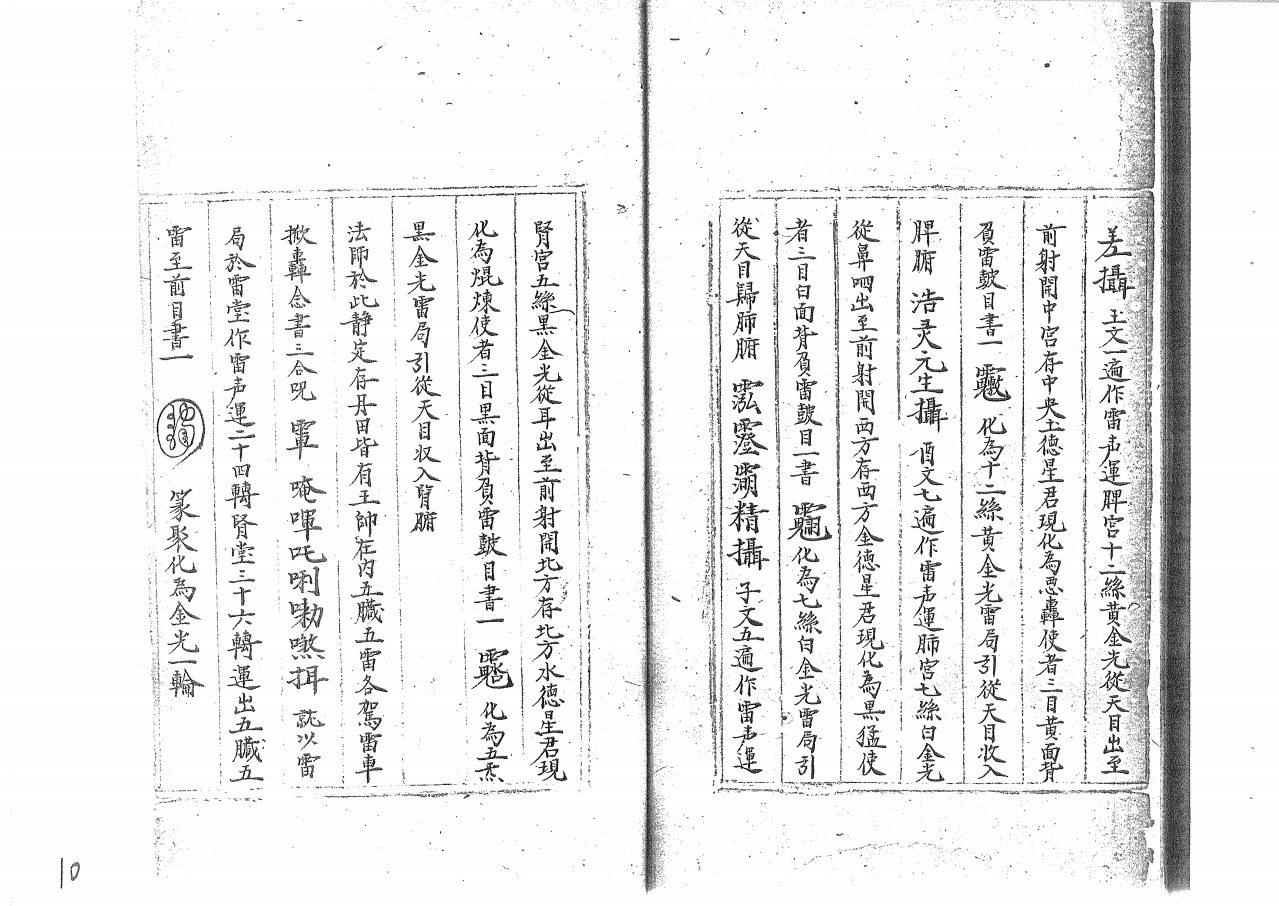 差攝 玉文一遍作雷声運脾宮十二絲黃金光從天目出至
前射開中宮存中央土德星君現化為惡轟使者三目黃面背
負雷皷目書一 化為十二絲黃金光雷局引從天目收入
脾腑 浩灵元生攝 酉文七遍作雷声運肺宮七絲白金光
從鼻呬出至前射開西方存西方金德星君現化為黑猛使
者三目白面背負雷皷目一書 化為七絲白金光雷局引
從天目歸肺腑 精攝 子文五遍作雷声運
腎宮五絲黑金光從耳出至前射開北方存北方水德星君現
化為焜煉使者三目黑面背負雷皷目書一 化為五炁
黑金光雷局引從天目収入腎腑
法師於此靜定存丹田皆有王帥在内五臟五雷各駕雷車
掀轟念書三合咒 唵㖇吒唎 就以雷
局於雷堂作雷声運二十四轉腎堂三十六轉運出五臟五
雷至前目書一 篆聚化為金光一輪
10